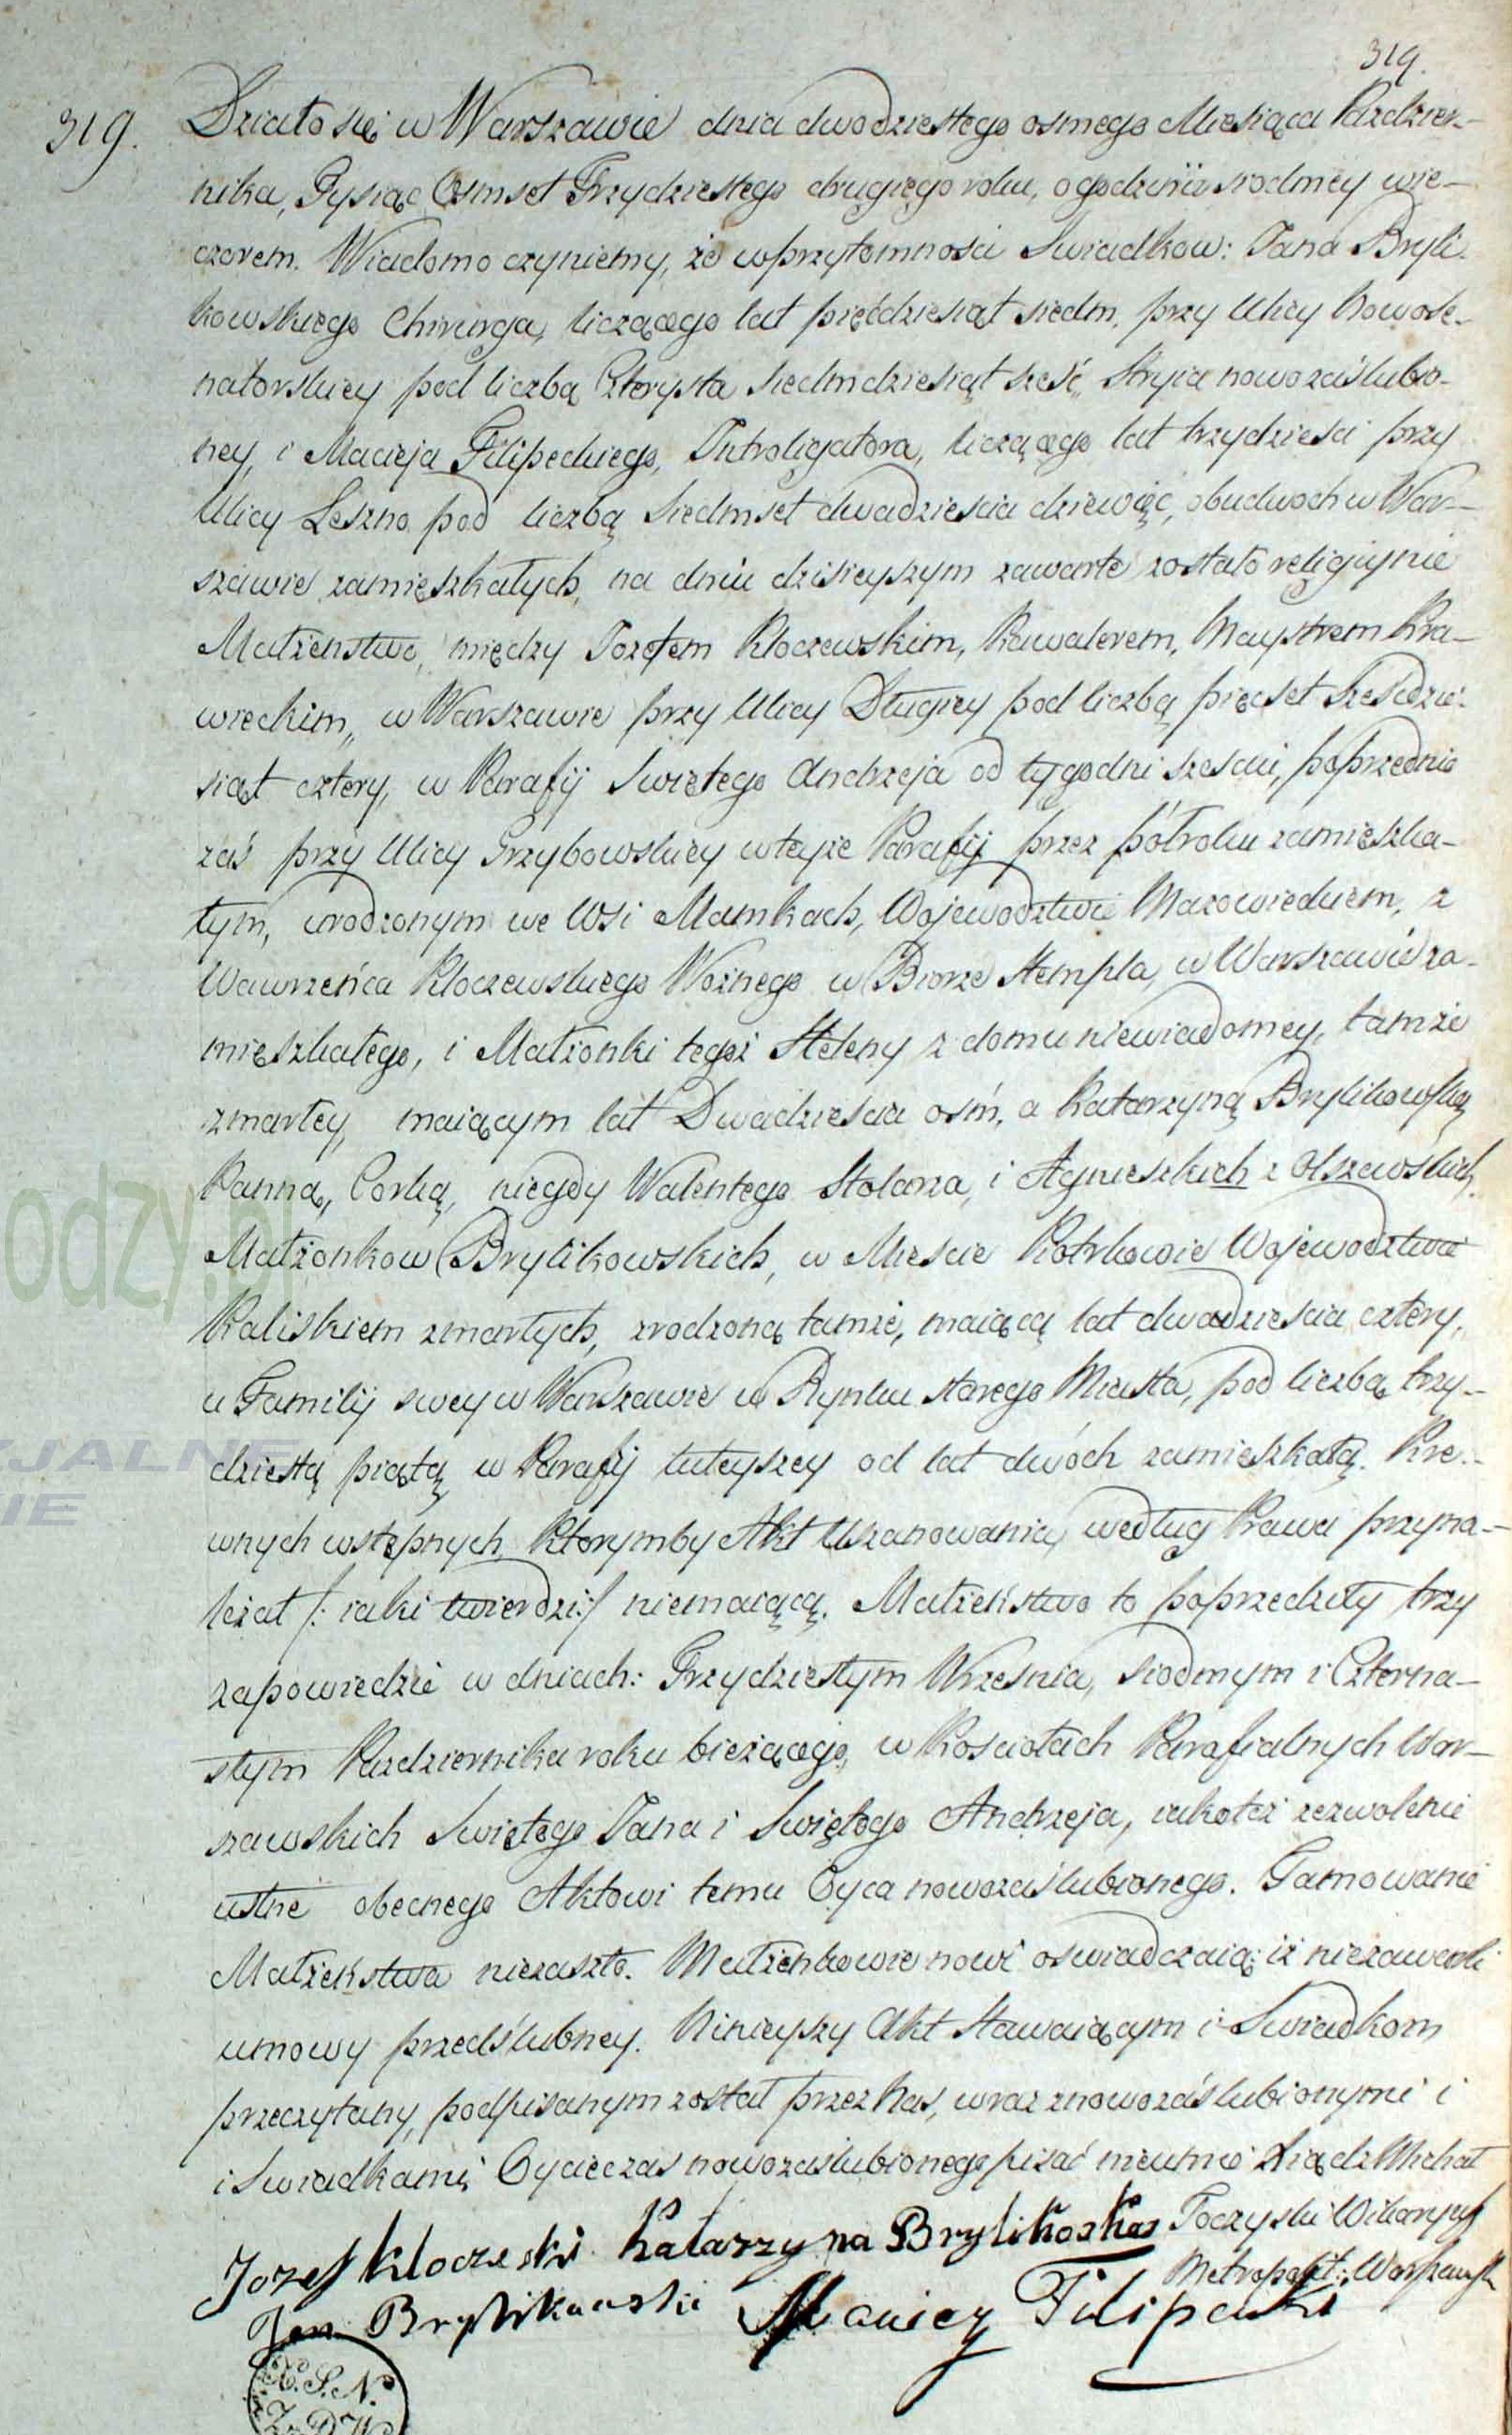 319.
319. Działo się w Warszawie dnia dwudziestego osmego Miesiąca Pazdzier-
nika, Tysiąc Osmset Trzydziestego drugiego roku, o godzinie siodmey wie-
czorem. Wiadomo czyniemy, że w przytomności Swiadkow: Jana Bryli-
kowskiego Chirurga, liczącego lat pięćdziesiąt siedm, przy Ulicy Nowose-
natorskiey pod liczbą Czterysta siedmdziesiąt sześć, Stryia nowozaślubio-
ney, i Macieja Filipeckiego, Introligatora, liczącego lat trzydzieści przy
Ulicy Leszno pod liczbą Siedmset dwadzieścia dziewięć, obudwoch w War-
szawie zamięszkałych, na dniu dzisieyszym zawarte zostało religiynie
Małżenstwo, między Jozefem Kłoczewskim, Kawalerem, Maystrem Kra-
wieckim, w Warszawie przy Ulicy Długiey pod liczbą pięćset sześćdzie-
siąt cztery, w Parafij Swiętego Andrzeja od tygodni sześciu, poprzednio
zaś przy Ulicy Grzybowskiey w teyże Parafij przez półroku zamięszka-
łym, urodzonym we Wsi Mamkach, Województwie Mazowieckiem, z
Wawrzeńca Kłoczewskiego Woźnego w Biorze Stempla, w Warszawie za-
mięszkałego, i Małżonki tegoż Heleny z domu niewiadomey, tamże
zmarłey, maiącym lat Dwadzieścia ośm, a Katarzyną Brylikowską
Panną, Corką, niegdy Walentego Stolarza, i Agnieszkich z Olszewskich
Małżonkow Brylikowskich, w Mieście Piotrkowie Województwie
Kaliskiem zmarłych, zrodzoną tamże, maiącą lat dwadzieścia cztery,
u Familij swey w Warszawie w Rynku starego Miasta, pod liczbą trzy-
dziestą piątą w Parafij tuteyszey od lat dwóch zamieszkałą. Kre-
wnych wstępnych, którymby Akt Uszanowania według Prawa przyna-
leżał /: iaki twierdzi :/ niemaiącą. Małżeństwo to poprzedziły trzy
zapowiedzie w dniach: Trzydziestym Września, siodmym i Czterna-
stym Pazdziernika roku bieżącego, w Kościołach Parafialnych War-
szawskich Swiętego Jana i Swiętego Andrzeja, iakoteż zezwolenie
ustne obecnego Aktowi temu Oyca nowozaślubionego. Tamowanie
Małżeństwa niezaszło. Małżonkowie nowi oświadczaią: iż niezawarli
umowy przedślubney. Ninieyszy Akt Stawaiącym i Swiadkom
przeczytany, podpisanym został przez Nas, wraz z nowozaślubionymi i
i Swiadkami, Oyciec zaś nowozaślubionego pisać nieumie Xiądz Michał
Toczyski Wikaryusz
Metropolit: Warszawsk
Jozef kloczeski Katarzyna Brylikoska
Jan Brylikowski Maciey Filipecki
K. S. N.
Z. D. W.
odzy.pl
YJALNE
KIE